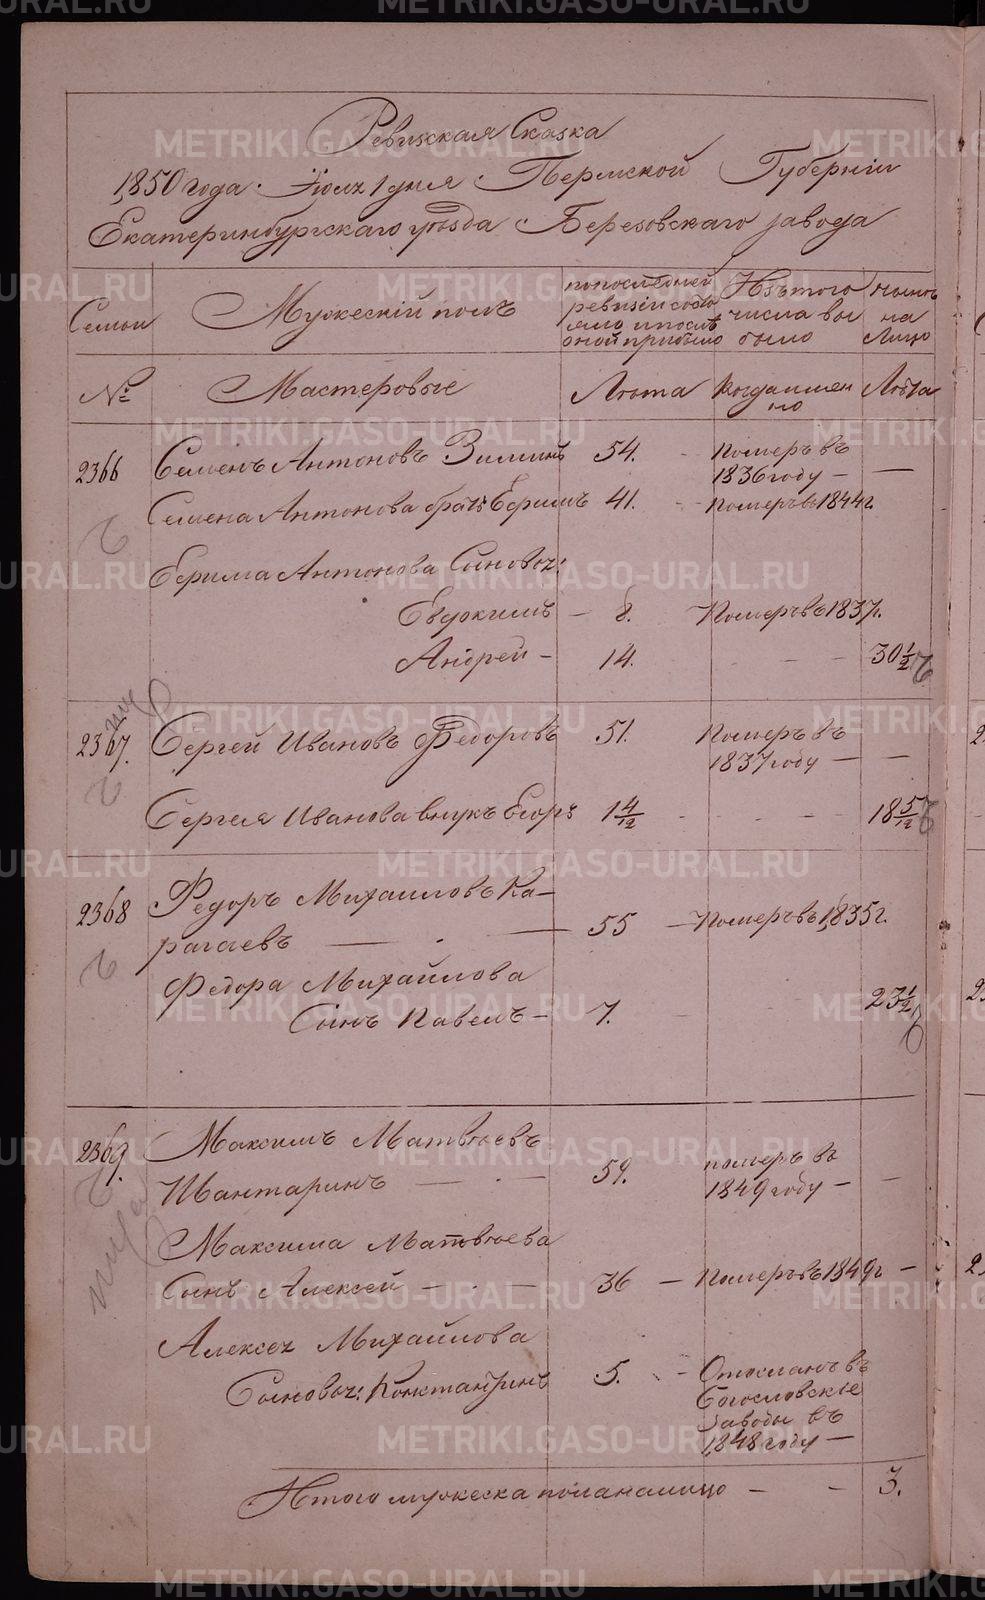 METRIKI.GASO-URAL.RU
Ревизская Сказка
1850 года. Июля 1 дня Пермской Губернiи
Екатеринбургского уѣзда Березовскаго завода
Семьи
Мужескiй полъ
по последней ревизiи состояло и послѣ оной прибыло
Изъ того числа выбыло
ныне на Лицо
№
Мастеровые
Лѣта
когда имено
Лѣта
2366 Семенъ Антоновъ Зиминъ 54. - померъ въ
1836 году - —
Семена Антонова братъ Ефимъ 41. - померъ въ 1844 г.
Ефима Антонова Сыновья:
Евдокимъ - 8. Померъ въ 1837 г.
Андрей - 14. - - - 30 1/2
2367. Сергей Ивановъ Федоровъ 51. Померъ въ
1837 году - —
Сергея Иванова внукъ Егоръ 1 4/12 - - - 18 5/12
2368 Федоръ Михаиловъ Ка-
рагаевъ — 55 - Померъ въ 1835 г.
Федора Михайлова
Сынъ Павелъ - 7. 23 1/2
2369. Максимъ Матвѣевъ
Шантаринъ — 59. померъ въ
1849 году - -
Максима Матвѣева
Сынъ Алексей — 36 - Померъ въ 1849 г -
Алексея Михайлова
Сыновья: Константинъ 5. - Отосланъ въ
Богословскiе
заводы въ
1848 году -
Итого мужеска пола на лицо - - 3.